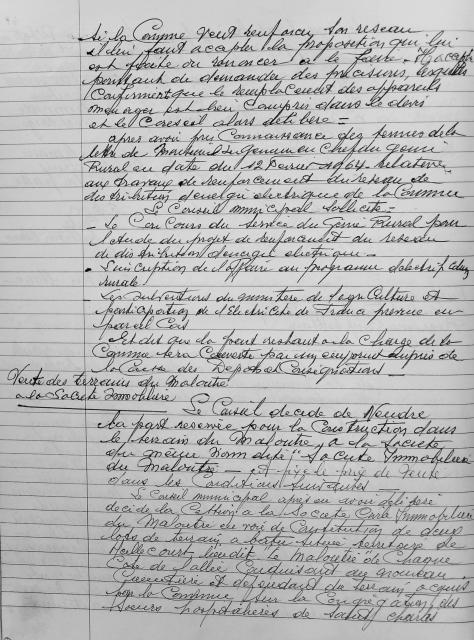 Si la Comme veut renforcer son reseau
il lui faut accepter la proposition qui lui
est faite ou renoncer a le faire. Il accepte
pourtant de demander des précisions, lesquelles
Confirment que le remplacement des appareils
menager est bien Compris dans le devis
et le Conseil alors délibère =
après avoir pris Connaissance des termes de la
lettre de Monsieur l'Ingenieur en Chef du Genie
Rural en date du 12 1964 relative
aux travaux de renforcement du reseau de
distribution d'energie electrique de la Commune
Le Conseil municipal Sollicite =
- Le Concours du Service du Génie Rural pour
l'étude du projet de renforcement du reseau
de distribution d'energie electrique -
- L'inscription de l'affaire au programme d'electrification
rurale
- Les subventions du ministere de l'agriCulture et
participation de l'Electricite de France prevue en
pareil Cas
Et dit que la part restant a la Charge de la
Comme sera Couverte par un emprunt auprès de
la Caisse des Depots et Consignations -
Vente des terrains du Maloutre
a la Société Immobiliere
Le Conseil décide de Vendre
la part reservée pour la Construction dans
le terrain du Maloutre, a la Societe
du même nom dite "Societe Immobiliere
du Maloutre - et fixe le prix de Vente
dans les Conditions Suivantes
Le Conseil municipal après en avoir délibéré
decide la Cession a la Societe Immobiliere
du Maloutre en voie de Constitution de deux
lots de terrain a batir situé territoire de
lieudit le Maloutre de Chaque
Cote de l'allée Conduisant au nouveau
Cimetiere et dependant du terrain acquis
par la Commune sur la Congregation des
Soeurs hospitalières de saint Charles